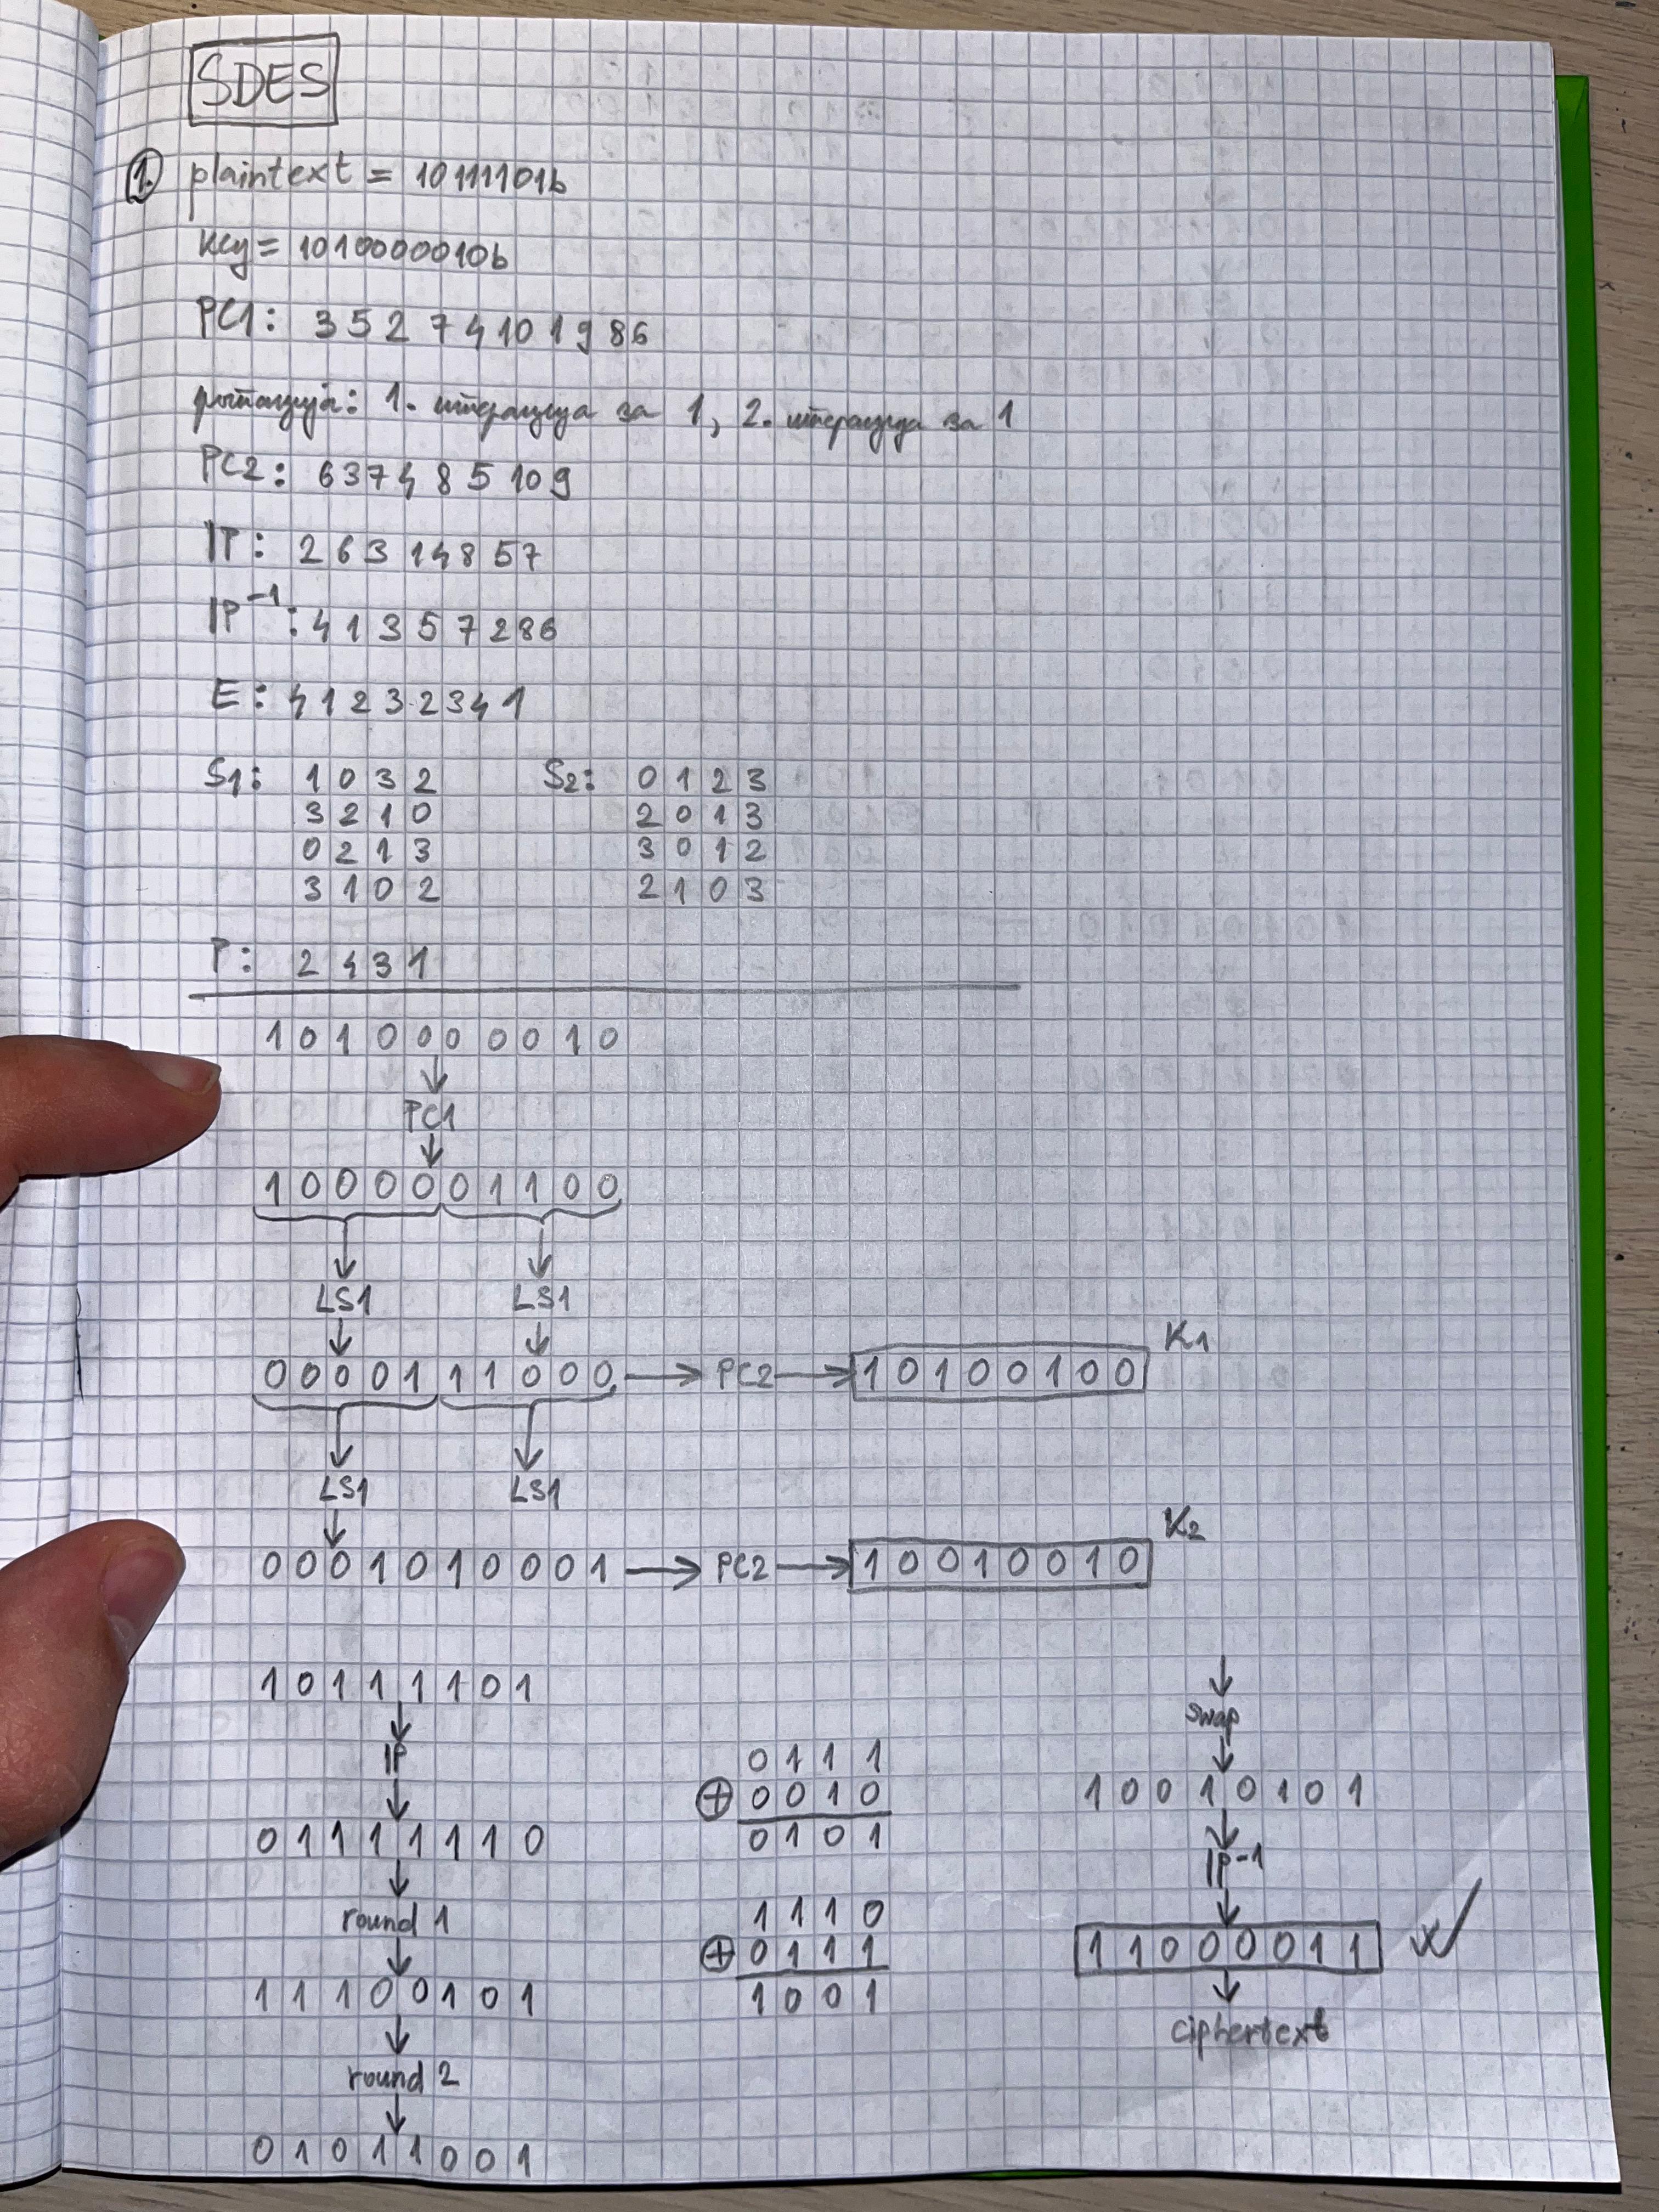 SDES
1. plaintext = 10111101b
key = 1010000010b
PC1: 3 5 2 7 4 10 1 9 8 6
ротација: 1. итерација за 1, 2. итерација за 1
PC2: 6 3 7 4 8 5 10 9
IP: 2 6 3 1 4 8 5 7
IP⁻¹: 4 1 3 5 7 2 8 6
E: 4 1 2 3 2 3 4 1
S1: 1 0 3 2 S2: 0 1 2 3
3 2 1 0 2 0 1 3
0 2 1 3 3 0 1 2
3 1 0 2 2 1 0 3
P: 2 4 3 1
1 0 1 0 0 0 0 0 1 0
↓
PC1
↓
1 0 0 0 0 0 1 1 0 0
↓ ↓
LS1 LS1
↓ ↓
0 0 0 0 1 1 1 0 0 0 → PC2 → 1 0 1 0 0 1 0 0 K1
↓ ↓
LS1 LS1
↓
0 0 0 1 0 1 0 0 0 1 → PC2 → 1 0 0 1 0 0 1 0 K2
1 0 1 1 1 1 0 1
↓
IP
↓
0 1 1 1 1 1 1 0
↓
round 1
↓
1 1 1 0 0 1 0 1
↓
round 2
↓
0 1 0 1 1 0 0 1
0 1 1 1
⊕ 0 0 1 0
0 1 0 1
1 1 1 0
⊕ 0 1 1 1
1 0 0 1
↓
swap
↓
1 0 0 1 0 1 0 1
↓
IP-1
↓
1 1 0 0 0 0 1 1 ✓
↓
ciphertext